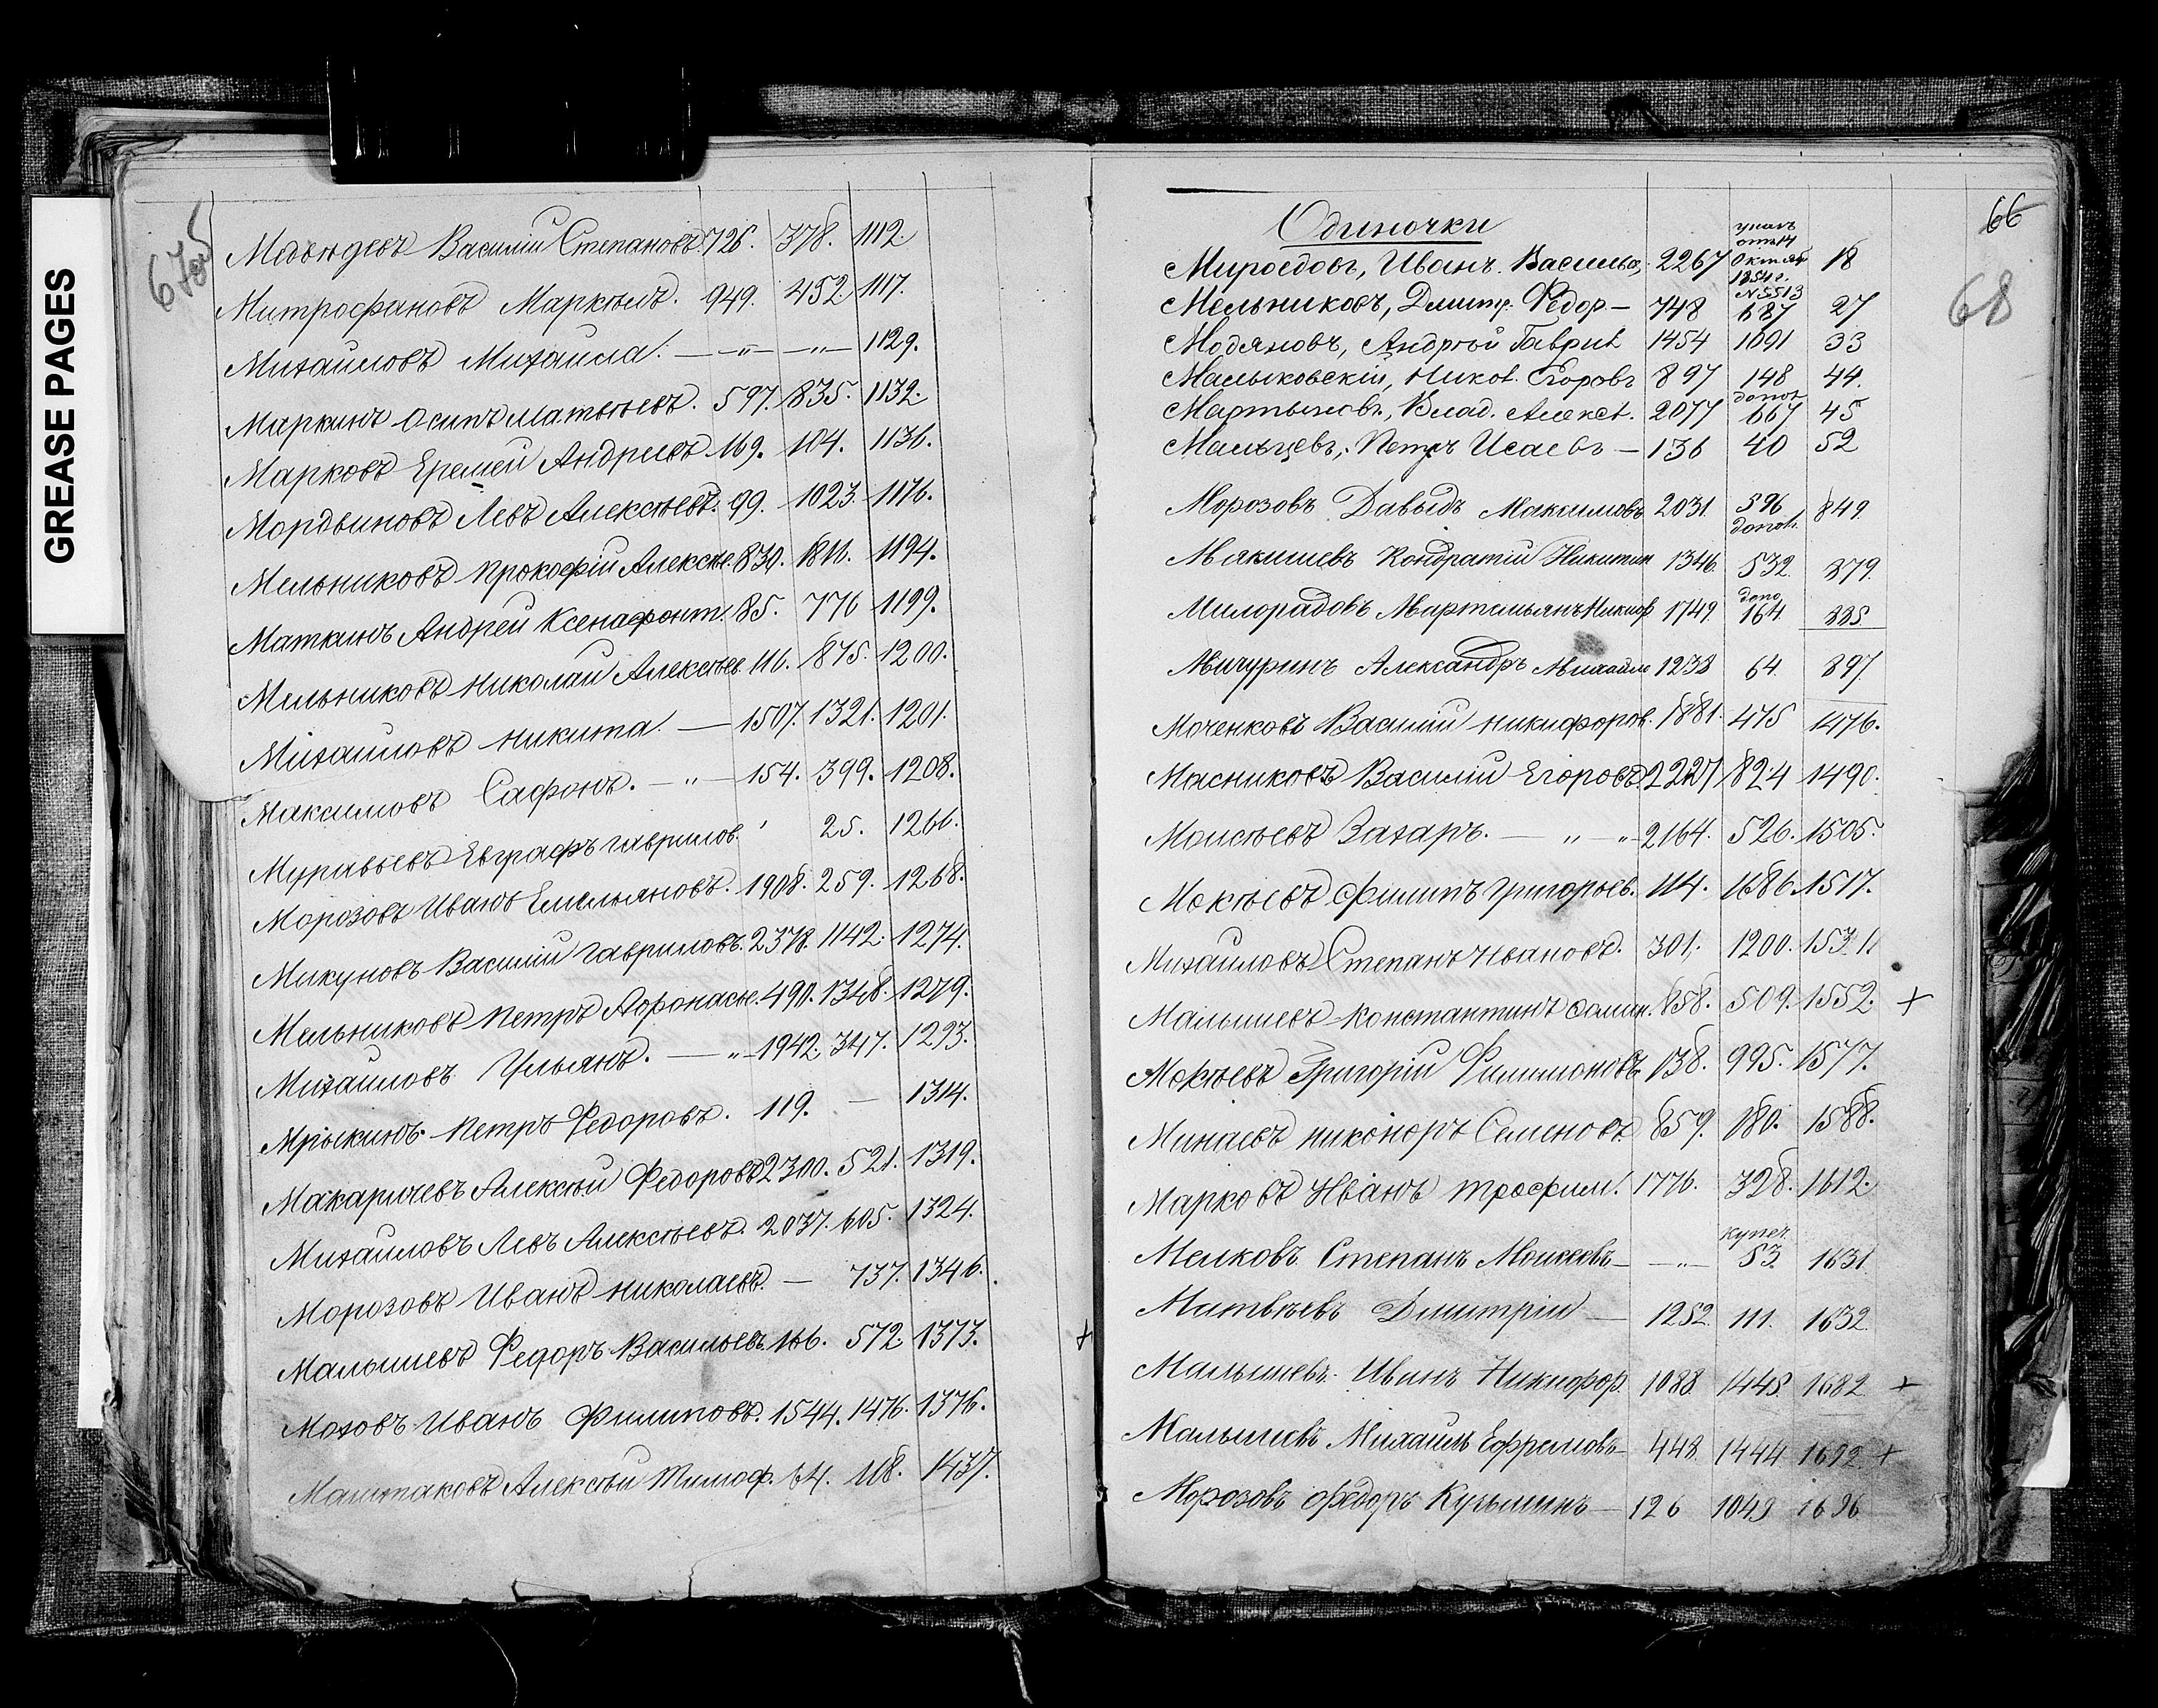 GREASE PAGES
67об
Медвѣдевъ Василій Степановъ. 726. 378. 1112.
Митрофановъ Маркелъ. 949. 452 1117.
Михайловъ Михайла. — „ — — „ — 1129.
Маркинъ Осипъ Матвѣевъ. 597. 835. 1132.
Марковъ Еремей Андреевъ 169. 104. 1136.
Мордвиновъ Левъ Алексѣевъ. 99. 1023 1176.
Мельниковъ Прокофій Алексѣе. 830. 1194.
Маткинъ Андрей Ксенафонт. 85. 776 1199.
Мельниковъ Николай Алексѣев. 116. 875. 1200.
Михайловъ Никита. — 1507. 1321. 1201.
Максимовъ Сафонъ. — „ — 154. 399. 1208.
Муравьевъ Евграфъ Гаврилов. 25. 1266.
Морозовъ Иванъ Емельяновъ. 1908. 259. 1268.
Микуновъ Василій Гавриловъ. 2378. 1142. 1274.
Мельниковъ Петръ Афонасье. 490. 1348. 1279.
Михайловъ Ульянъ. — „ — 1942. 347. 1293.
Мрыкинъ Петръ Федоровъ. 119. — 1314.
Макаричевъ Алексѣй Федоровъ 2300. 521. 1319.
Михайловъ Левъ Алексѣевъ. 2037. 605. 1324.
Морозовъ Иванъ Николаевъ. — 737. 1346.
Малышевъ Федоръ Васильевъ. 166. 572. 1373. +
Моховъ Иванъ Филиповъ. 1544. 1476. 1376.
Маштаковъ Алексѣй Тимоф. 64. 118. 1437.
66
68
Одиночки
указъ
отъ 14
Мироедовъ, Иванъ. Васильев. 2267 Октяб 18
1851 г.
N 5513
Мельниковъ, Дмитр. Федор — 748 687 27
Модяновъ, Андрей Гаврил 1454 1091 33
Малыковскій, Никол. Егоровъ 897 148 44.
допол
Мартыновъ, Влад. Алексѣ. 2077 667 45
Мальцевъ, Петръ Исаевъ — 136 40 52
Морозовъ Давыдъ Максимовъ 2031. 596 849.
допол.
Мякишевъ Кондратій Никитин 1346. 532. 879.
допо
Милорадовъ Мартемьянъ Никиф 1749. 164. 885
Мичуринъ Александръ Михайло 1238 64. 897
Моченковъ Василій Никифоров. 1881. 475 1476.
Масниковъ Василій Егоровъ. 2227 824 1490.
Моисѣевъ Захаръ. — „ — „ — 2164. 526. 1505.
Мокѣевъ Филипъ Григорьев. 114. 1686. 1517.
Михайловъ Степанъ Ивановъ. 301. 1200. 1531.
Малышевъ Константинъ 858. 509. 1552. +
Мокѣевъ Григорій Филимоновъ 138. 995. 1577.
Минаевъ Никоноръ Семеновъ 859. 180. 1588.
Марковъ Иванъ Трофим. 1776. 328. 1612.
купеч.
Мелковъ Степанъ Моисеевъ — — „ — 53. 1631
Матвѣевъ Дмитрій — 1252. 111. 1632
Малышевъ Иванъ Никифор. 1088 1445 1682 +
Малышевъ Михаилъ Ефремовъ — 448. 1444 1692 +
Морозовъ Федоръ Кузьминъ — 126 1049 1696